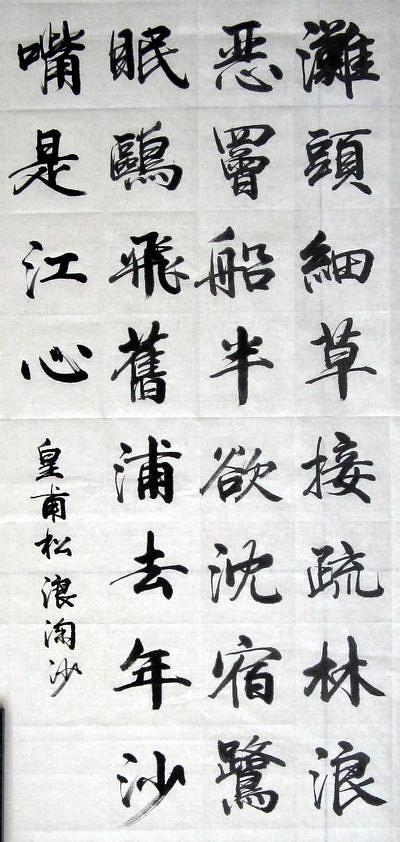 灘頭細草接疏林浪
惡罾船半欲沈宿鷺
眠鷗飛舊浦去年沙
嘴是江心
皇甫松浪淘沙